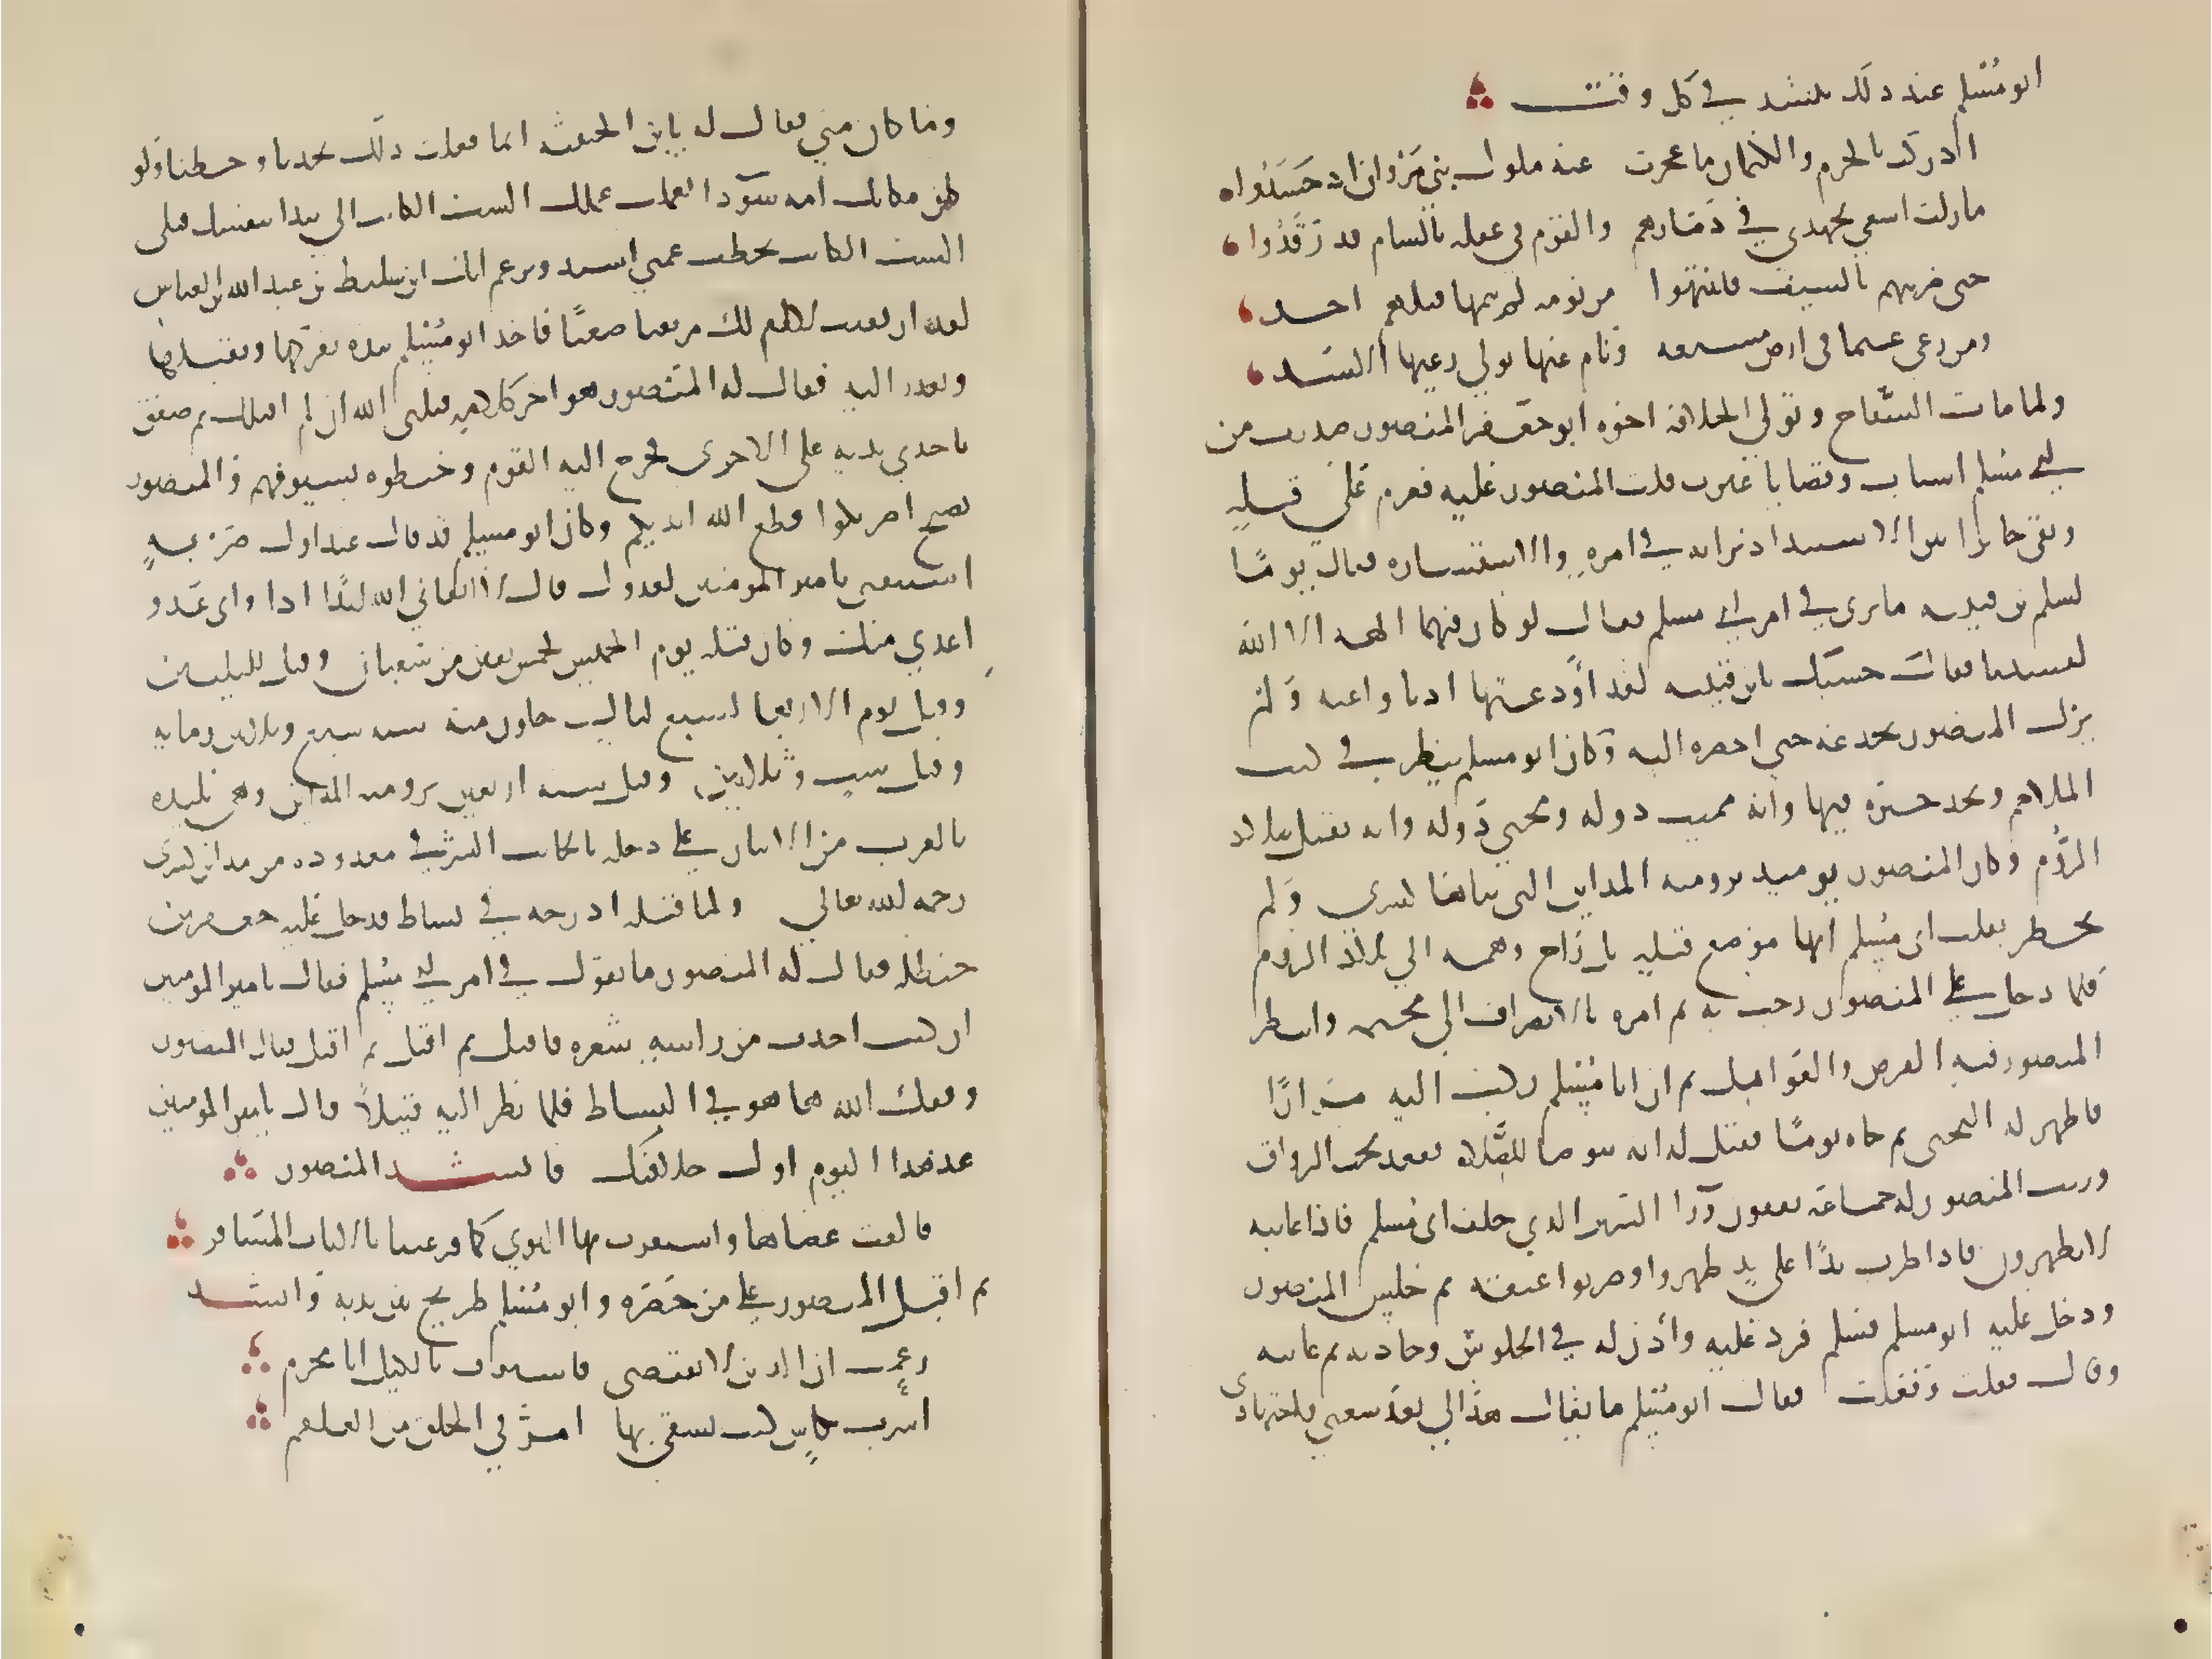 ابو مسلم عند ذلك ينشد في كل وقت
ادركت بالحزم والكتمان ما عجزت عنه ملوك بني مروان اذ حسدوا
ما زلت اسعى بجهدي في دمارهم والقوم في غفلة بالشام قد رقدوا
حتى ضربتهم بالسيف فانتبهوا من نومة لم ينمها قبلهم احد
ومن رعى غنما في ارض مسبعة ونام عنها تولى رعيها الاسد
ولما مات السفاح وتولى الخلافة اخوه ابو جعفر المنصور صدرت من
ابي مسلم اسباب وقضايا غيرت قلب المنصور عليه فعزم على قتله
وبقي حائرا بين الاستبداد برايه في امره والاستشارة فقال يوما
لسلم بن قتيبة ما ترى في امر ابي مسلم فقال لو كان فيهما الهة الا الله
لفسدتا فقال حسبك يا بن قتيبة لقد اودعتها اذنا واعية ولم
يزل المنصور يخدعه حتى احضره اليه وكان ابو مسلم ينظر في كتب
الملاحم ويجد خبره فيها وانه مميت دولة ومحيي دولة وانه يقتل ببلاد
الروم وكان المنصور يوميذ برومية المداين التي بناها كسرى ولم
يخطر بقلب ابي مسلم انها موضع قتله بل راح وهمه الى بلاد الروم
فلما دخل على المنصور رحب به ثم امره بالانصراف الى مخيمه وانتظر
المنصور فيه الفرص والغوايل ثم ان ابا مسلم ركب اليه مرارا
فاظهر له التجني ثم جاه يوما فقيل له انه يتوضا للصلاة فقعد تحت الرواق
ورتب المنصور له جماعة يقفون ورا السرير الذي خلف ابي مسلم فاذا عاتبه
لا يظهرون فاذا ضرب يدا على يد ظهروا وضربوا عنقه ثم جلس المنصور
ودخل عليه ابو مسلم فسلم فرد عليه واذن له في الجلوس وحادثه ثم عاتبه
وقال فعلت وفعلت فقال ابو مسلم ما يقال هذا لي بعد سعيي واجتهادي
وما كان مني فقال له يا بن الخبيثة انما فعلت ذلك بجدنا وحظنا ولو
كان مكانك امة سودا لعملت عملك الست الكاتب الي تبدا بنفسك قبلي
الست الكاتب تخطب عمتي اسية وتزعم انك ابن سليط بن عبد الله بن العباس
لقد ارتقيت لا ام لك مرتقا صعبا فاخذ ابو مسلم بيده يعركها ويقبلها
ويعتذر اليه فقال له المنصور وهو اخر كلامه قتلني الله ان لم اقتلك ثم صفق
باحدى يديه على الاخرى فخرج اليه القوم وخبطوه بسيوفهم والمنصور
يصيح اضربوا قطع الله ايديكم وكان ابو مسلم قد قال عند اول ضربة
استبقني يا امير المومنين لعدوك قال لا ابقاني الله ابدا اذا واي عدو
اعدى منك وكان قتله يوم الخميس لخمس بقين من شعبان وقيل لليلتين
وقيل يوم الاربعا لسبع ليال خلون منه سنة سبع وثلاثين وماية
وقيل ست وثلاثين وقيل سنة اربعين برومية المداين وهي بليدة
بالقرب من الانبار على دجلة بالجانب الشرقي معدودة من مداين كسرى
رحمه الله تعالى ولما قتله ادرجه في بساط فدخل عليه جعفر بن
حنظلة فقال له المنصور ما تقول في امر ابي مسلم فقال يا امير المومنين
ان كنت اخذت من راسه شعرة فاقتل ثم اقتل ثم اقتل فقال المنصور
وفقك الله ها هو في البساط فلما نظر اليه قتيلا قال يا امير المومنين
عد هذا اليوم اول خلافتك فانشد المنصور
فالقت عصاها واستقرت بها النوى كما قر عينا بالاياب المسافر
ثم اقبل المنصور على من حضره وابو مسلم طريح بين يديه وانشد
زعمت ان الدين لا يقتضى فاستوف بالكيل ابا مجرم
اشرب بكاس كنت تسقي بها امر في الحلق من العلقم